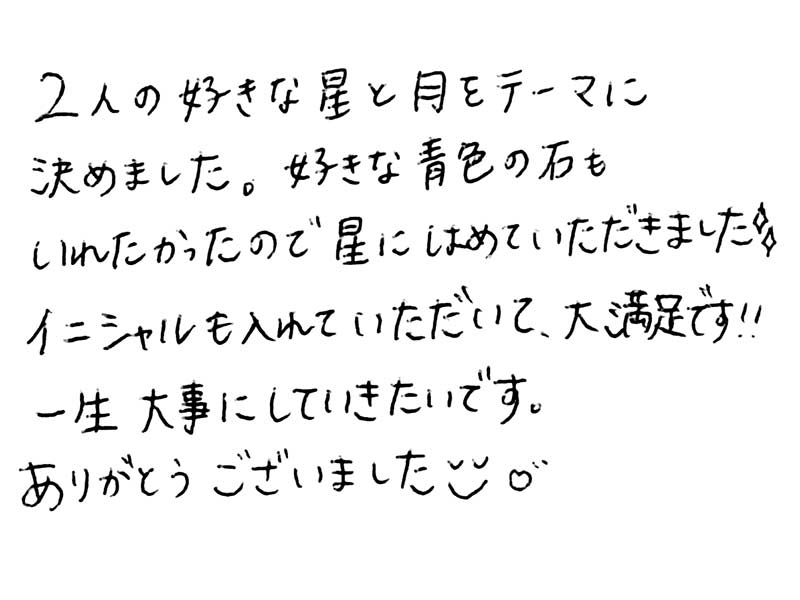 2人の好きな星と月をテーマに
決めました。好きな青色の石も
いれたかったので星にはめていただきました✨
イニシャルも入れていただいて、大満足です!!
一生大事にしていきたいです。
ありがとうございました